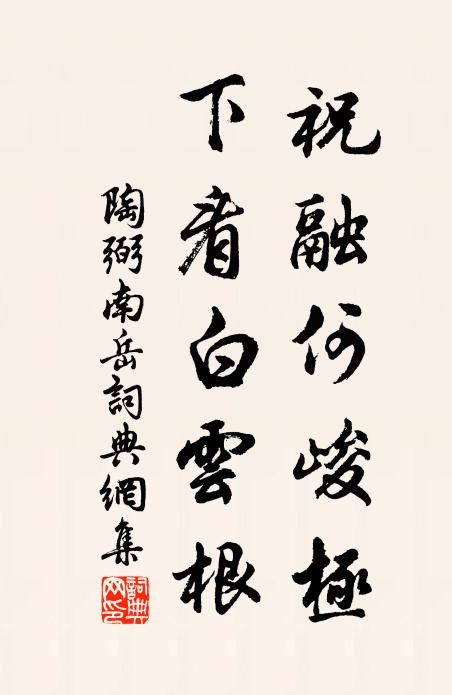 祝融何峻極
下看白雲根
陶弼南岳詞典網集
詞典網印